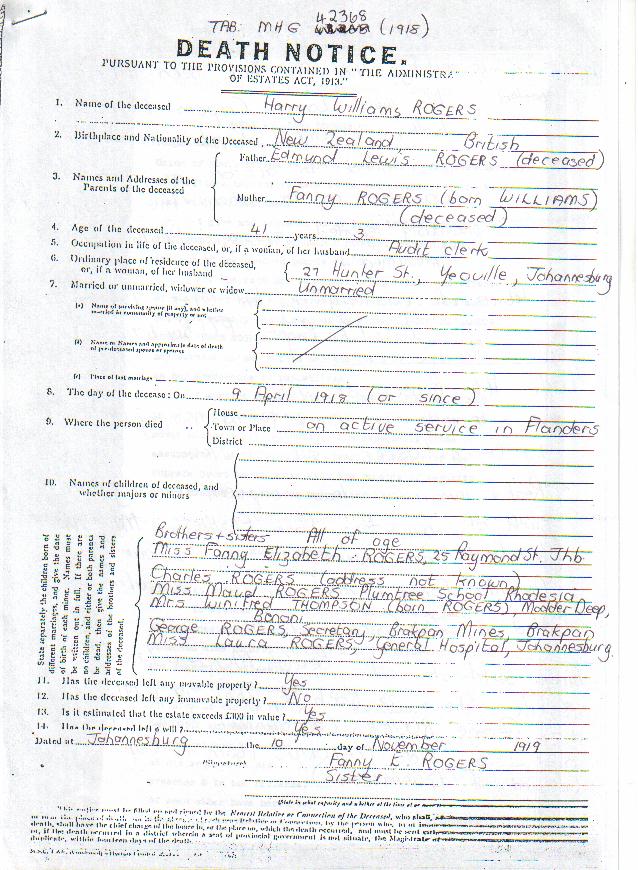 42368
TAB: MHG (1918)
DEATH NOTICE.
PURSUANT TO THE PROVISIONS CONTAINED IN "THE ADMINISTRA
OF ESTATES ACT, 1913."
1. Name of the deceased Harry Williams ROGERS
2. Birthplace and Nationality of the Deceased New Zealand, British
3. Names and Addresses of the Parents of the deceased
Father Edmund Lewis ROGERS (deceased)
Mother Fanny ROGERS (born WILLIAMS)
(deceased)
4. Age of the deceased 41 years 3
5. Occupation in life of the deceased, or, if a woman, of her husband Audit clerk
6. Ordinary place of residence of the deceased, or, if a woman, of her husband 27 Hunter St., Yeoville, Johannesburg
7. Married or unmarried, widower or widow Unmarried
(a) Name of surviving spouse (if any), and whether married in community of property or not
(b) Name or Names and approximate date of death of predeceased spouse or spouses
(c) Place of last marriage
8. The day of the decease: On 9 April 1918 (or since)
9. Where the person died
House
Town or Place on active service in Flanders
District
10. Names of children of deceased, and whether majors or minors
State separately the children born of
different marriages, and give the date
of birth of each minor. Names must
be written out in full. If there are
no children, and either or both parents
be dead, then give the names and
addresses of the brothers and sisters
of the deceased.
Brothers + sisters All of age
Miss Fanny Elizabeth ROGERS, 25 Raymond St. Jhb
Charles ROGERS (address not known)
Miss Maud ROGERS Plumtree School Rhodesia
Mrs Winifred THOMPSON (born ROGERS), Modder Deep,
Benoni
George ROGERS, Secretary, Brakpan Mines Brakpan
Miss Laura ROGERS, General Hospital, Johannesburg.
11. Has the deceased left any movable property? Yes
12. Has the deceased left any immovable property? No
13. Is it estimated that the estate exceeds £300 in value? Yes
14. Has the deceased left a will? Yes
Dated at Johannesburg the 10 day of November 1919
(Signature) Fanny E. ROGERS
Sister
(State in what capacity and whether at the time of
This notice must be filled up and signed by the Nearest Relative or Connection of the Deceased, who shall
death, shall have the chief charge of the house in, or the place on, which the death occurred, and must be sent
or, if the death occurred in a district wherein a seat of provincial government is not situate, the Magistrate of
duplicate, within fourteen days of the death.